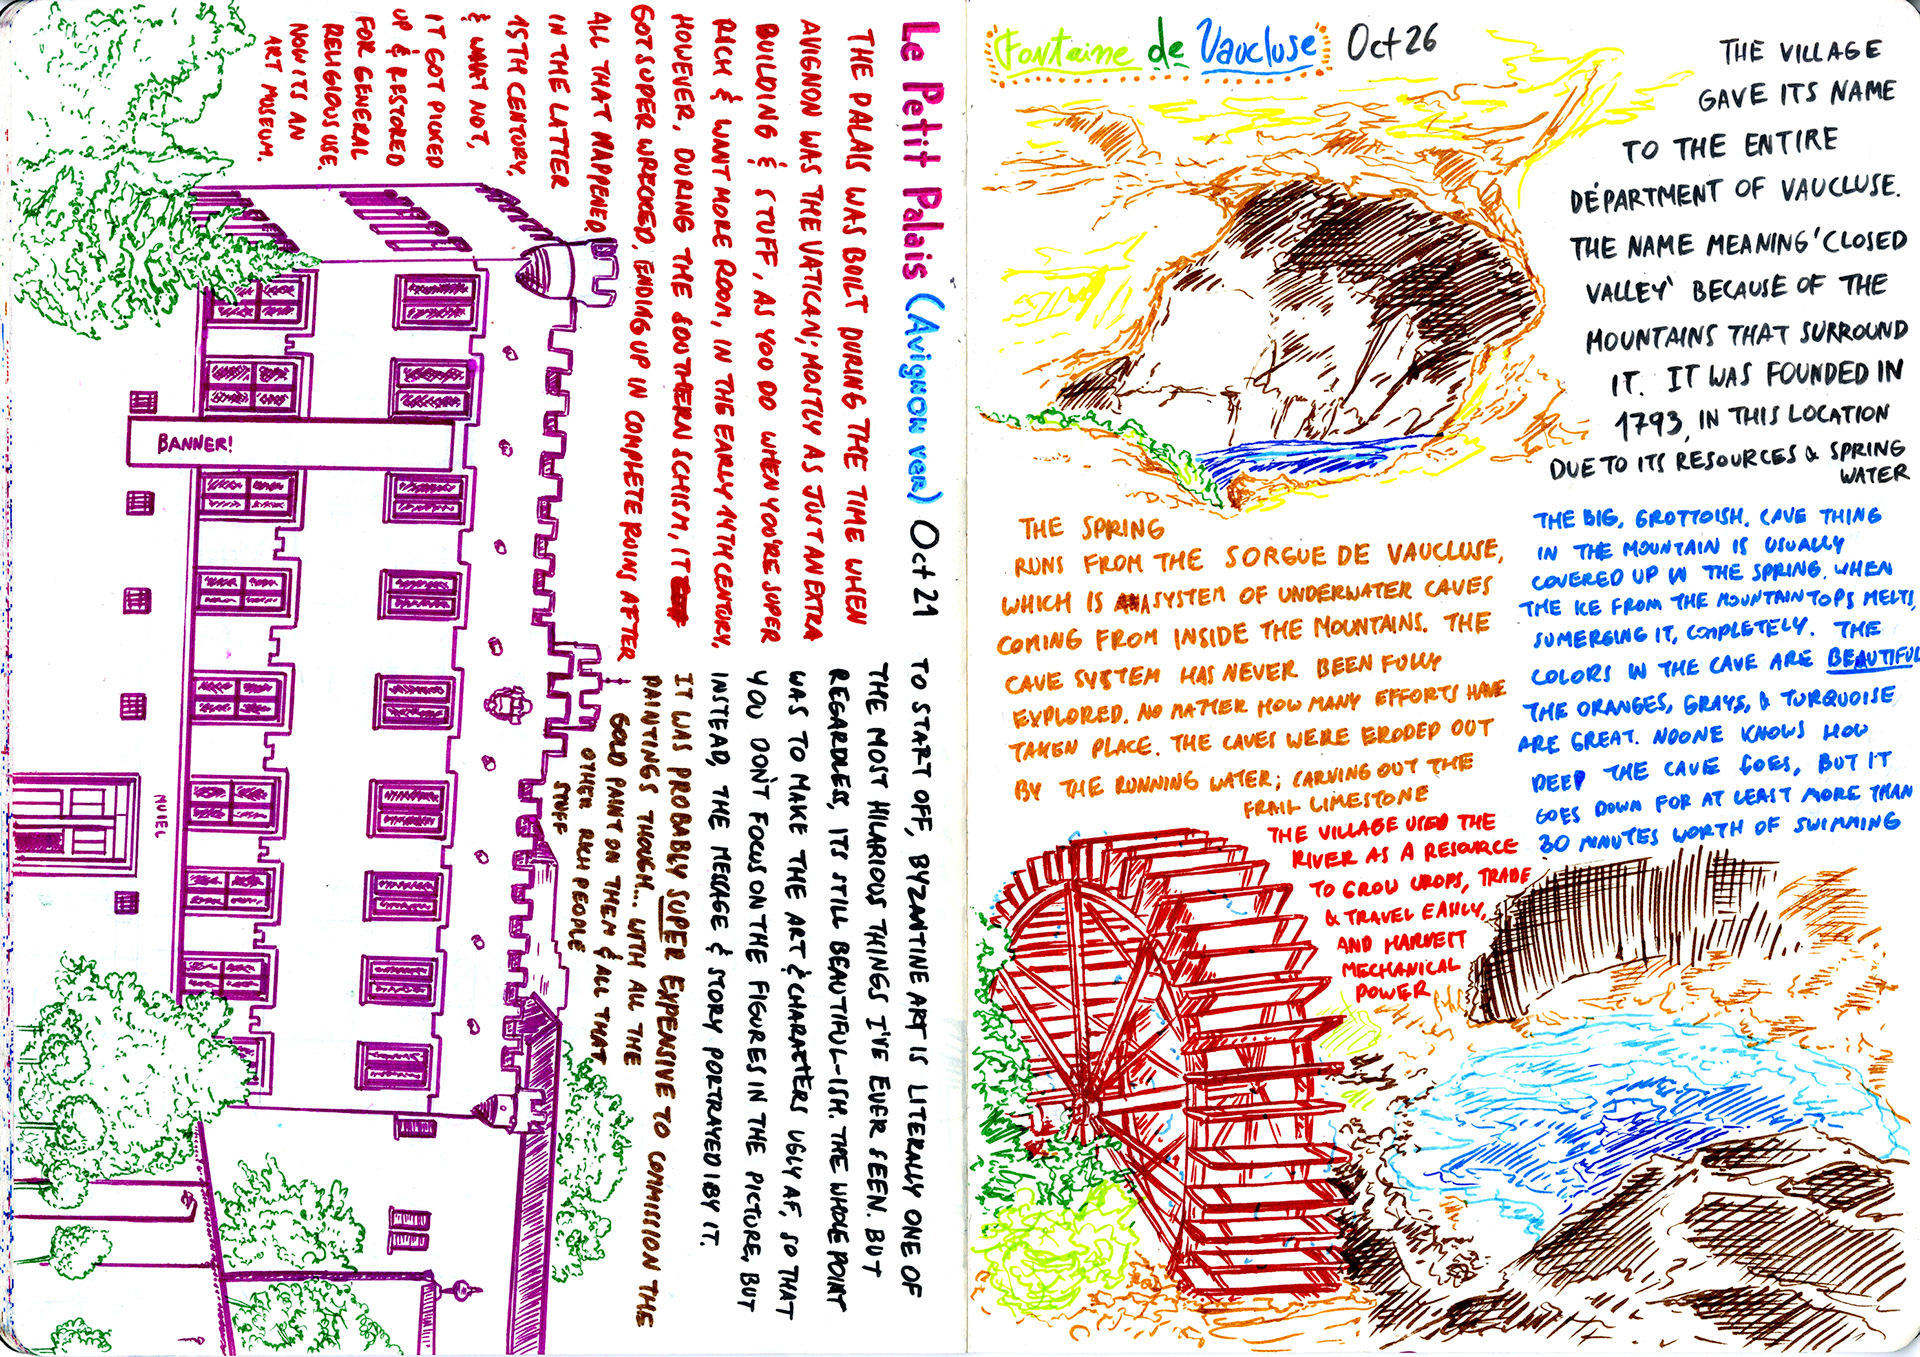 Le Petit Palais (Avignon ver) Oct 21
THE PALAIS WAS BUILT DURING THE TIME WHEN
AVIGNON WAS THE VATICAN; MOSTLY AS JUST AN EXTRA
BUILDING & STUFF, AS YOU DO WHEN YOU'RE SUPER
RICH & WANT MORE ROOM, IN THE EARLY 14TH CENTURY,
HOWEVER, DURING THE SOUTHERN SCHISM, IT
GOT SUPER WRECKED, ENDING UP IN COMPLETE RUINS AFTER
ALL THAT HAPPENED.
IN THE LATTER
15TH CENTURY,
& WHAT NOT,
IT GOT PICKED
UP & RESTORED
FOR GENERAL
RELIGIOUS USE.
NOW ITS AN
ART MUSEUM.
TO START OFF, BYZANTINE ART IS LITERALLY ONE OF
THE MOST HILARIOUS THINGS I'VE EVER SEEN. BUT
REGARDLESS, ITS STILL BEAUTIFUL-ISH. THE WHOLE POINT
WAS TO MAKE THE ART & CHARACTERS UGLY AF, SO THAT
YOU DON'T FOCUS ON THE FIGURES IN THE PICTURE, BUT
INSTEAD, THE MESSAGE & STORY PORTRAYED BY IT.
IT WAS PROBABLY SUPER EXPENSIVE TO COMMISSION THE
PAINTINGS THOUGH... WITH ALL THE
GOLD PAINT ON THEM & ALL THAT
OTHER RICH PEOPLE
STUFF
BANNER!
Fontaine de Vaucluse Oct 26
THE VILLAGE
GAVE ITS NAME
TO THE ENTIRE
DÉPARTMENT OF VAUCLUSE.
THE NAME MEANING 'CLOSED
VALLEY' BECAUSE OF THE
MOUNTAINS THAT SURROUND
IT. IT WAS FOUNDED IN
1793, IN THIS LOCATION
DUE TO ITS RESOURCES & SPRING
WATER
THE SPRING
RUNS FROM THE SORGUE DE VAUCLUSE,
WHICH IS A SYSTEM OF UNDERWATER CAVES
COMING FROM INSIDE THE MOUNTAINS. THE
CAVE SYSTEM HAS NEVER BEEN FULLY
EXPLORED. NO MATTER HOW MANY EFFORTS HAVE
TAKEN PLACE. THE CAVES WERE ERODED OUT
BY THE RUNNING WATER; CARVING OUT THE
FRAIL LIMESTONE
THE BIG, GROTTOISH, CAVE THING
IN THE MOUNTAIN IS USUALLY
COVERED UP IN THE SPRING, WHEN
THE ICE FROM THE MOUNTAINTOPS MELTS,
SUMERGING IT, COMPLETELY. THE
COLORS IN THE CAVE ARE BEAUTIFUL
THE ORANGES, GRAYS, & TURQUOISE
ARE GREAT. NOONE KNOWS HOW
DEEP THE CAVE GOES, BUT IT
GOES DOWN FOR AT LEAST MORE THAN
30 MINUTES WORTH OF SWIMMING
THE VILLAGE USED THE
RIVER AS A RESOURCE
TO GROW CROPS, TRADE
& TRAVEL EASILY,
AND HARVEST
MECHANICAL
POWER